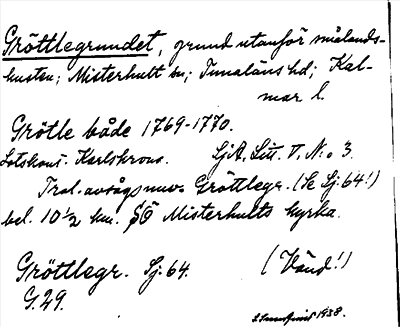 Gröttlegrundet, grund utanför smålands-
kusten; Misterhult sn; Tunaläns hd; Kal-
mar l.
Grötle både 1769-1770.
Lotskont. Karlskrona. SjA, Litt. V, No 3.
Trol. avtågsnuv. Gröttlegr. (Se Sj. 64!)
bel. 10½ km. SÖ Misterhults kyrka.
Gröttlegr. Sj. 64. (Vänd!)
G. 29.
1938.